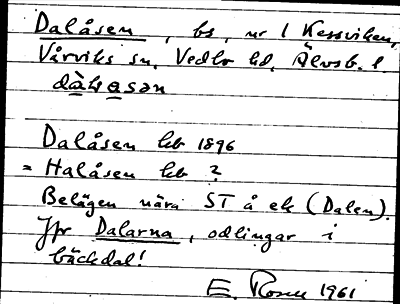 Dalåsen, bs, nr 1 Kesviken,
Vårviks sn. Vedbo hd, Älvsb. l.
dàlsasən
Dalåsen kb 1896
= Halåsen kb ?
Belägen nära ST å ek (Dalen).
Jfr Dalarna, odlingar i
bäckdal!
E. Rosen 1961